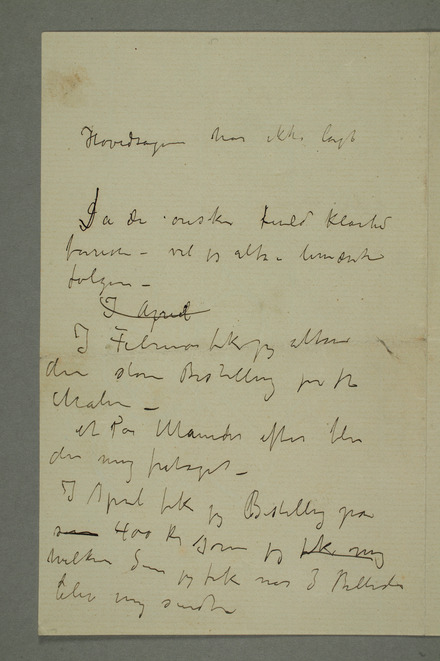 Hovedsagen har ikke lagt
Da De ønsker fuld Klarhed
vil jeg altsaa bemærke
følgen –
I April
I Februar fik jeg altsaa
den store Bestilling paa
et Par Maaneder efter blev
den mig frataget –
I April fik jeg Bestilling paa
400 Kr som jeg fik mig
hvilken Sum jeg fik naar 3 Billeder
blev mig sendte